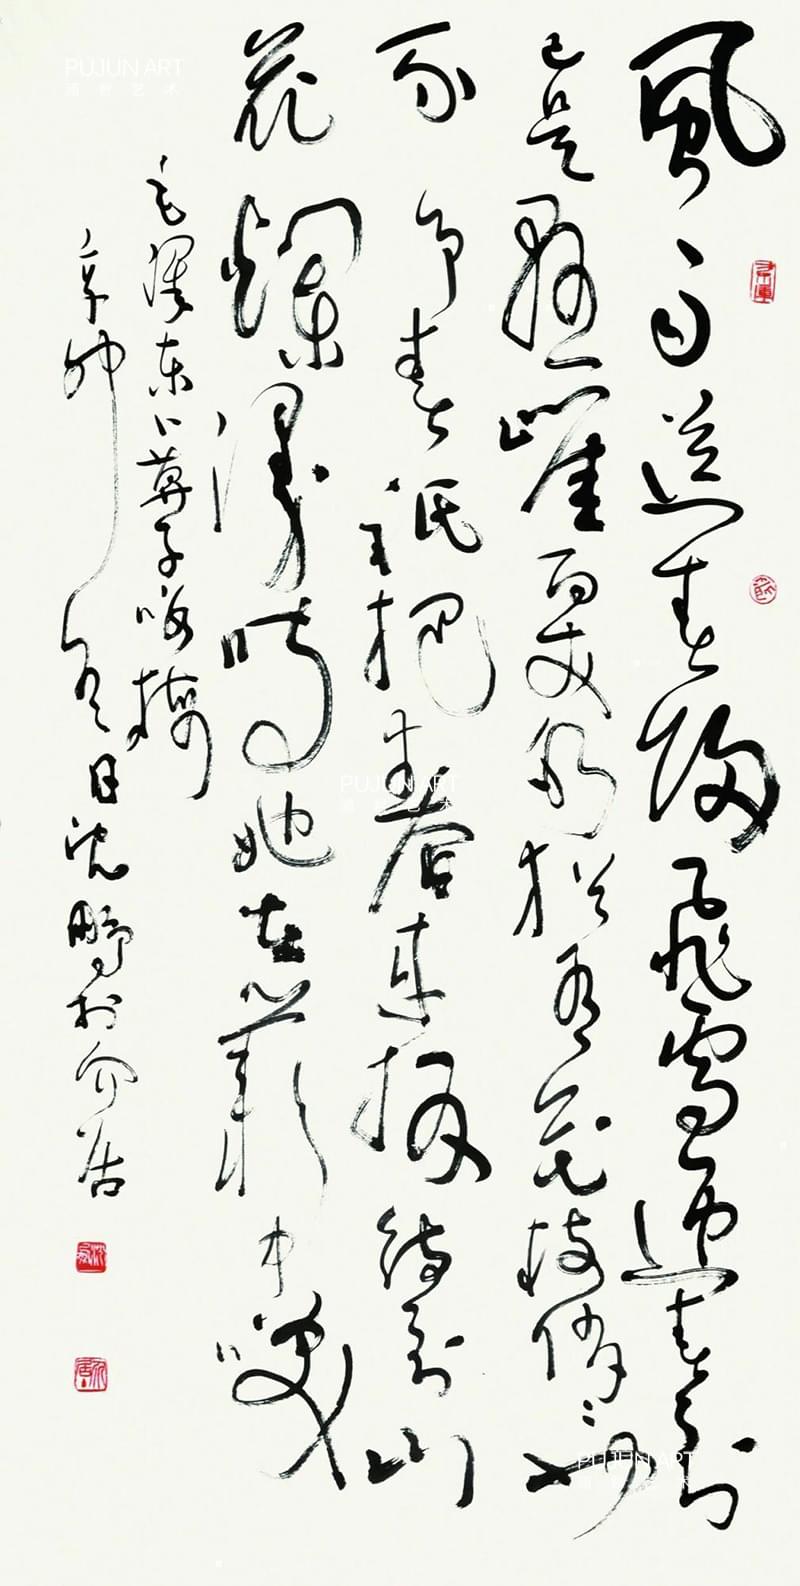 風雨送春歸飛雪迎春到
已是懸崖百丈冰猶有花枝俏〻也
不爭春祇把春來報待到山
花爛漫時她在叢中笑
毛澤東卜算子咏梅
辛卯冬日沈鵬於介居
PUJUN ART
PUJUN ART
PUJUN ART